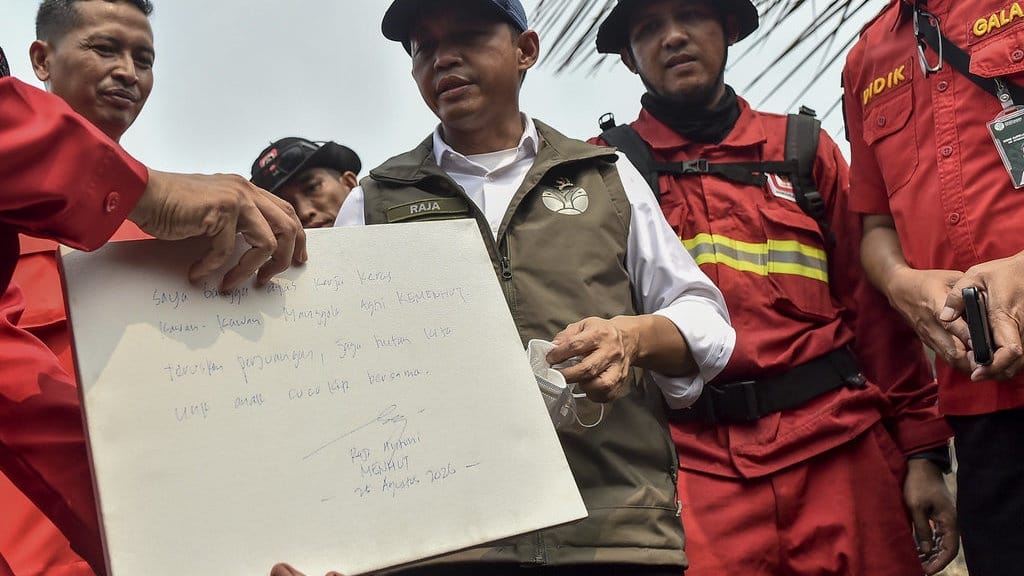 Saya bangga atas kerja keras
Kawan-Kawan Manggala Agni KEMENHUT
Teruskan perjuangan, jaga hutan kita
untuk anak cucu kita bersama.
MENHUT
- 25 Agustus 2026 -
RAJA
DIDIK
GALA